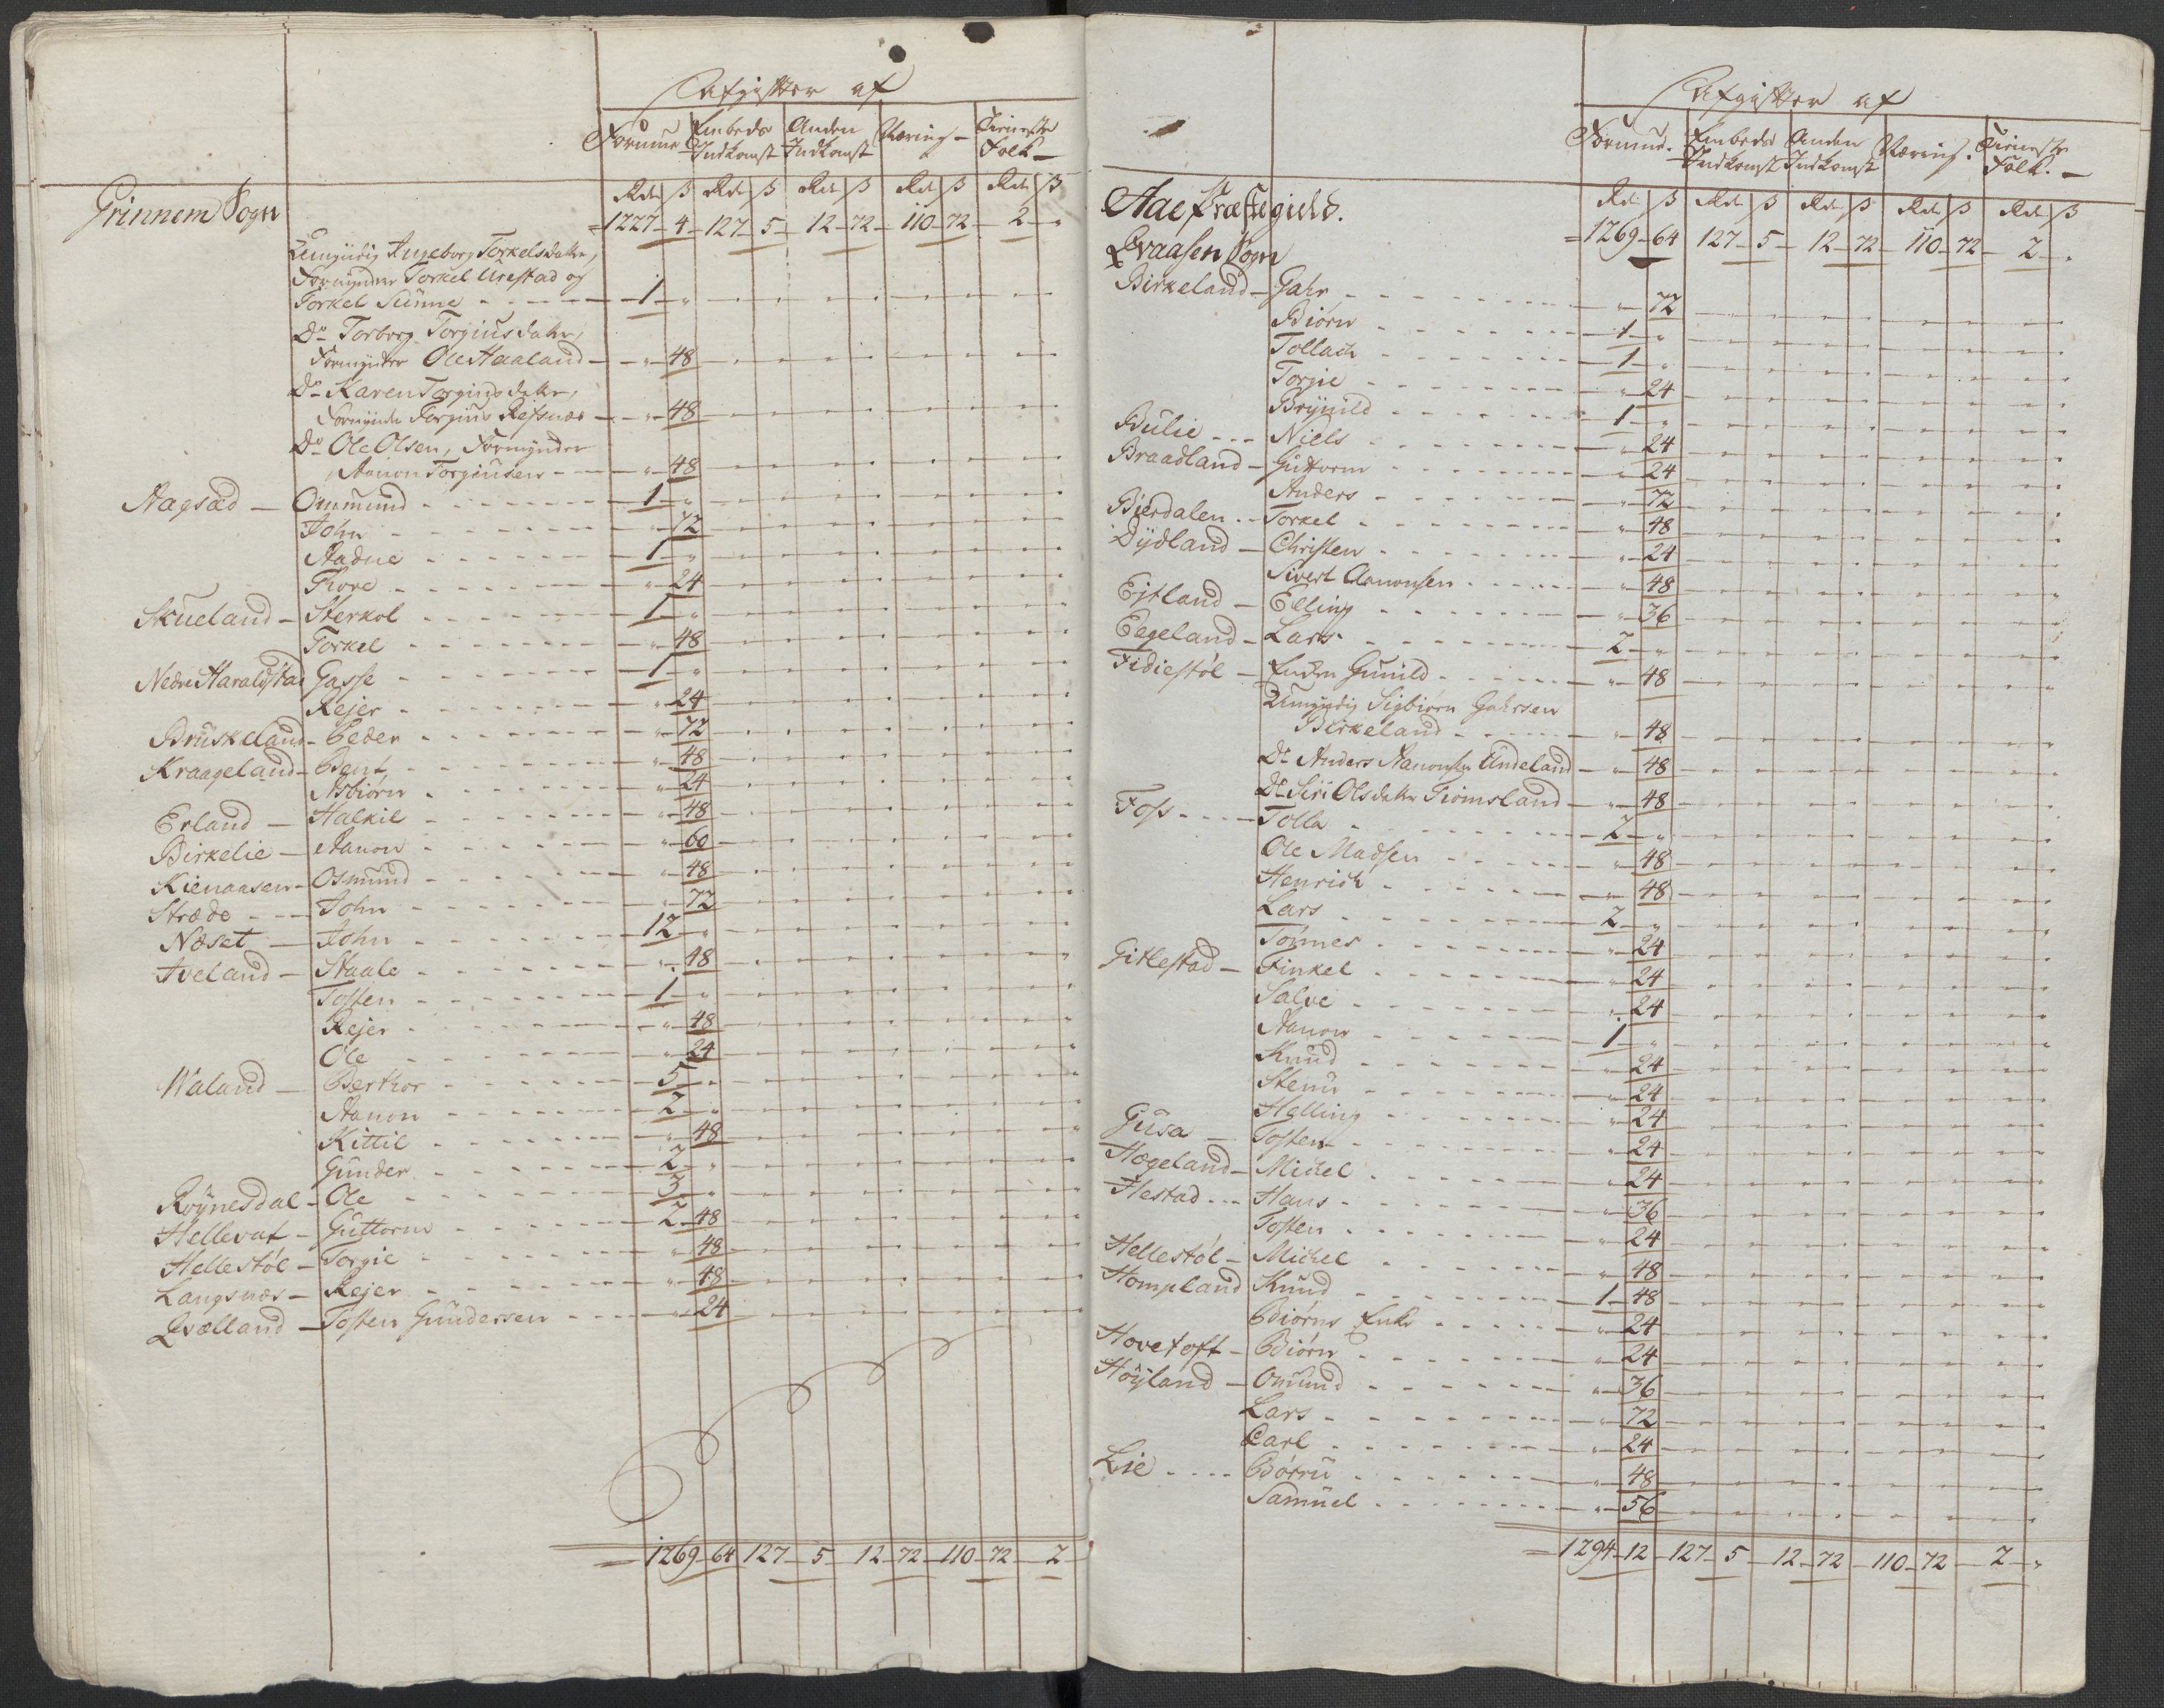 Afgifter af
Formue Embeds Indkomst Anden Indkomst Næring Tieneste Folk
Rd ß Rd ß Rd ß Rd ß Rd ß
Grinnem Sogn 1227 4 127 5 12 72 110 72 2 "
Umyndig Ingeborg Torkelsdatter,
Formynder Torkel Urestad og
Torkel Sünne 1 "
Do Torborg Torgiusdatter,
Formynder Ole Haaland " 48
Do Karen Torgiusdatter,
Formynder Torgius Refsnæs " 48
Do Ole Olsen, Formynder
Aanon Torgiusen " 48
Hagsad Ommund 1 "
John " 72
Aadne 1 "
Thore " 24
Skueland Sterkol 1 "
Torkel " 48
Nedre Haraldstad Gasse 1 "
Rejer " 24
Bruskeland Peder " 72
Kraageland Bent " 48
Asbiørn " 24
Erland Halkil " 48
Birkelie Aanon " 60
Kienaasen Osmund " 48
Stræde John " 72
Næset John 12 "
Iveland Staale " 48
Tosten 1 "
Rejer " 48
Ole " 24
Waland Berthor 5 "
Aanon 2 "
Kittil " 48
Gunder 2 "
Røynesdal Ole 3 "
Hellevat Guttorm 2 48
Hellestøl Torgie " 48
Langsnæs Rejer " 48
Qvælland Tosten Gundersen " 24
1269 64 127 5 12 72 110 72 2
Afgifter af
Formue. Embeds Indkomst Anden Indkomst Næring. Tieneste Folk.
Rd ß Rd ß Rd ß Rd ß Rd ß
Aae Præstegield.
Qvaasen Sogn 1269 64 127 5 12 72 110 72 2 "
Birkeland Gahr " 72
Biørn 1 "
Tollach 1 "
Torgie " 24
Brynild 1 "
Bulie Niels " 24
Braadland Guttorm " 24
Anders " 72
Bierdalen Torkel " 48
Dydland Christen " 24
Sivert Aanonsen " 48
Ejtland Elling " 36
Eegeland Lars 2 "
Fidiestøl Enken Gunild " 48
Umyndig Sigbiørn Gahrsen
Birkeland " 48
Do Anders Aanonsen Undeland " 48
Do Siri Olsdatter Tiomsland " 48
Foss Tolla 2 "
Ole Madsen " 48
Henrich " 48
Lars 2 "
Tønnes " 24
Gitlestad Finkel " 24
Salve " 24
Aanon 1 "
Knud " 24
Stenu " 24
Helling " 24
Gusa Tosten " 24
Hageland Michel " 24
Hestad Hans " 36
Tosten " 24
Hellestøl Michel " 48
Hompland Knud 1 48
Biørns Enke " 24
Hovetoft Biørn " 24
Høyland Omund " 36
Lars " 72
Carl " 24
Lie Børru " 48
Samuel " 56
1294 12 127 5 12 72 110 72 2 "